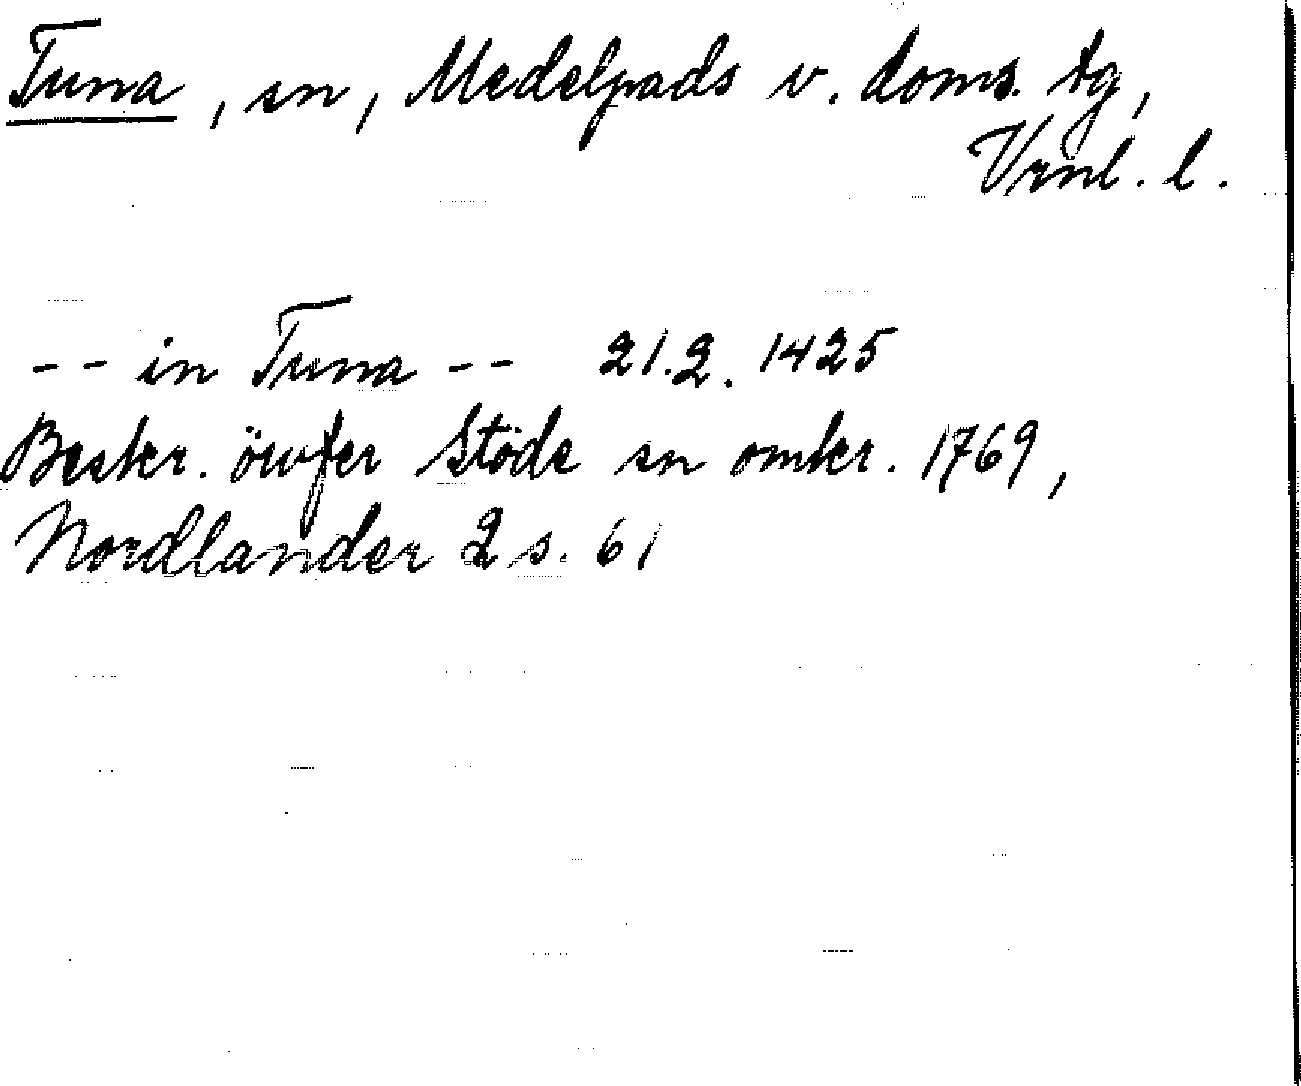 Tuna, sn, Medelpads v. doms. tg,
Vrnl. l.
-- in Tuna -- 21.2. 1425
Beskr. öwfer Stöde sn omkr. 1769,
Nordlander 2 s. 61